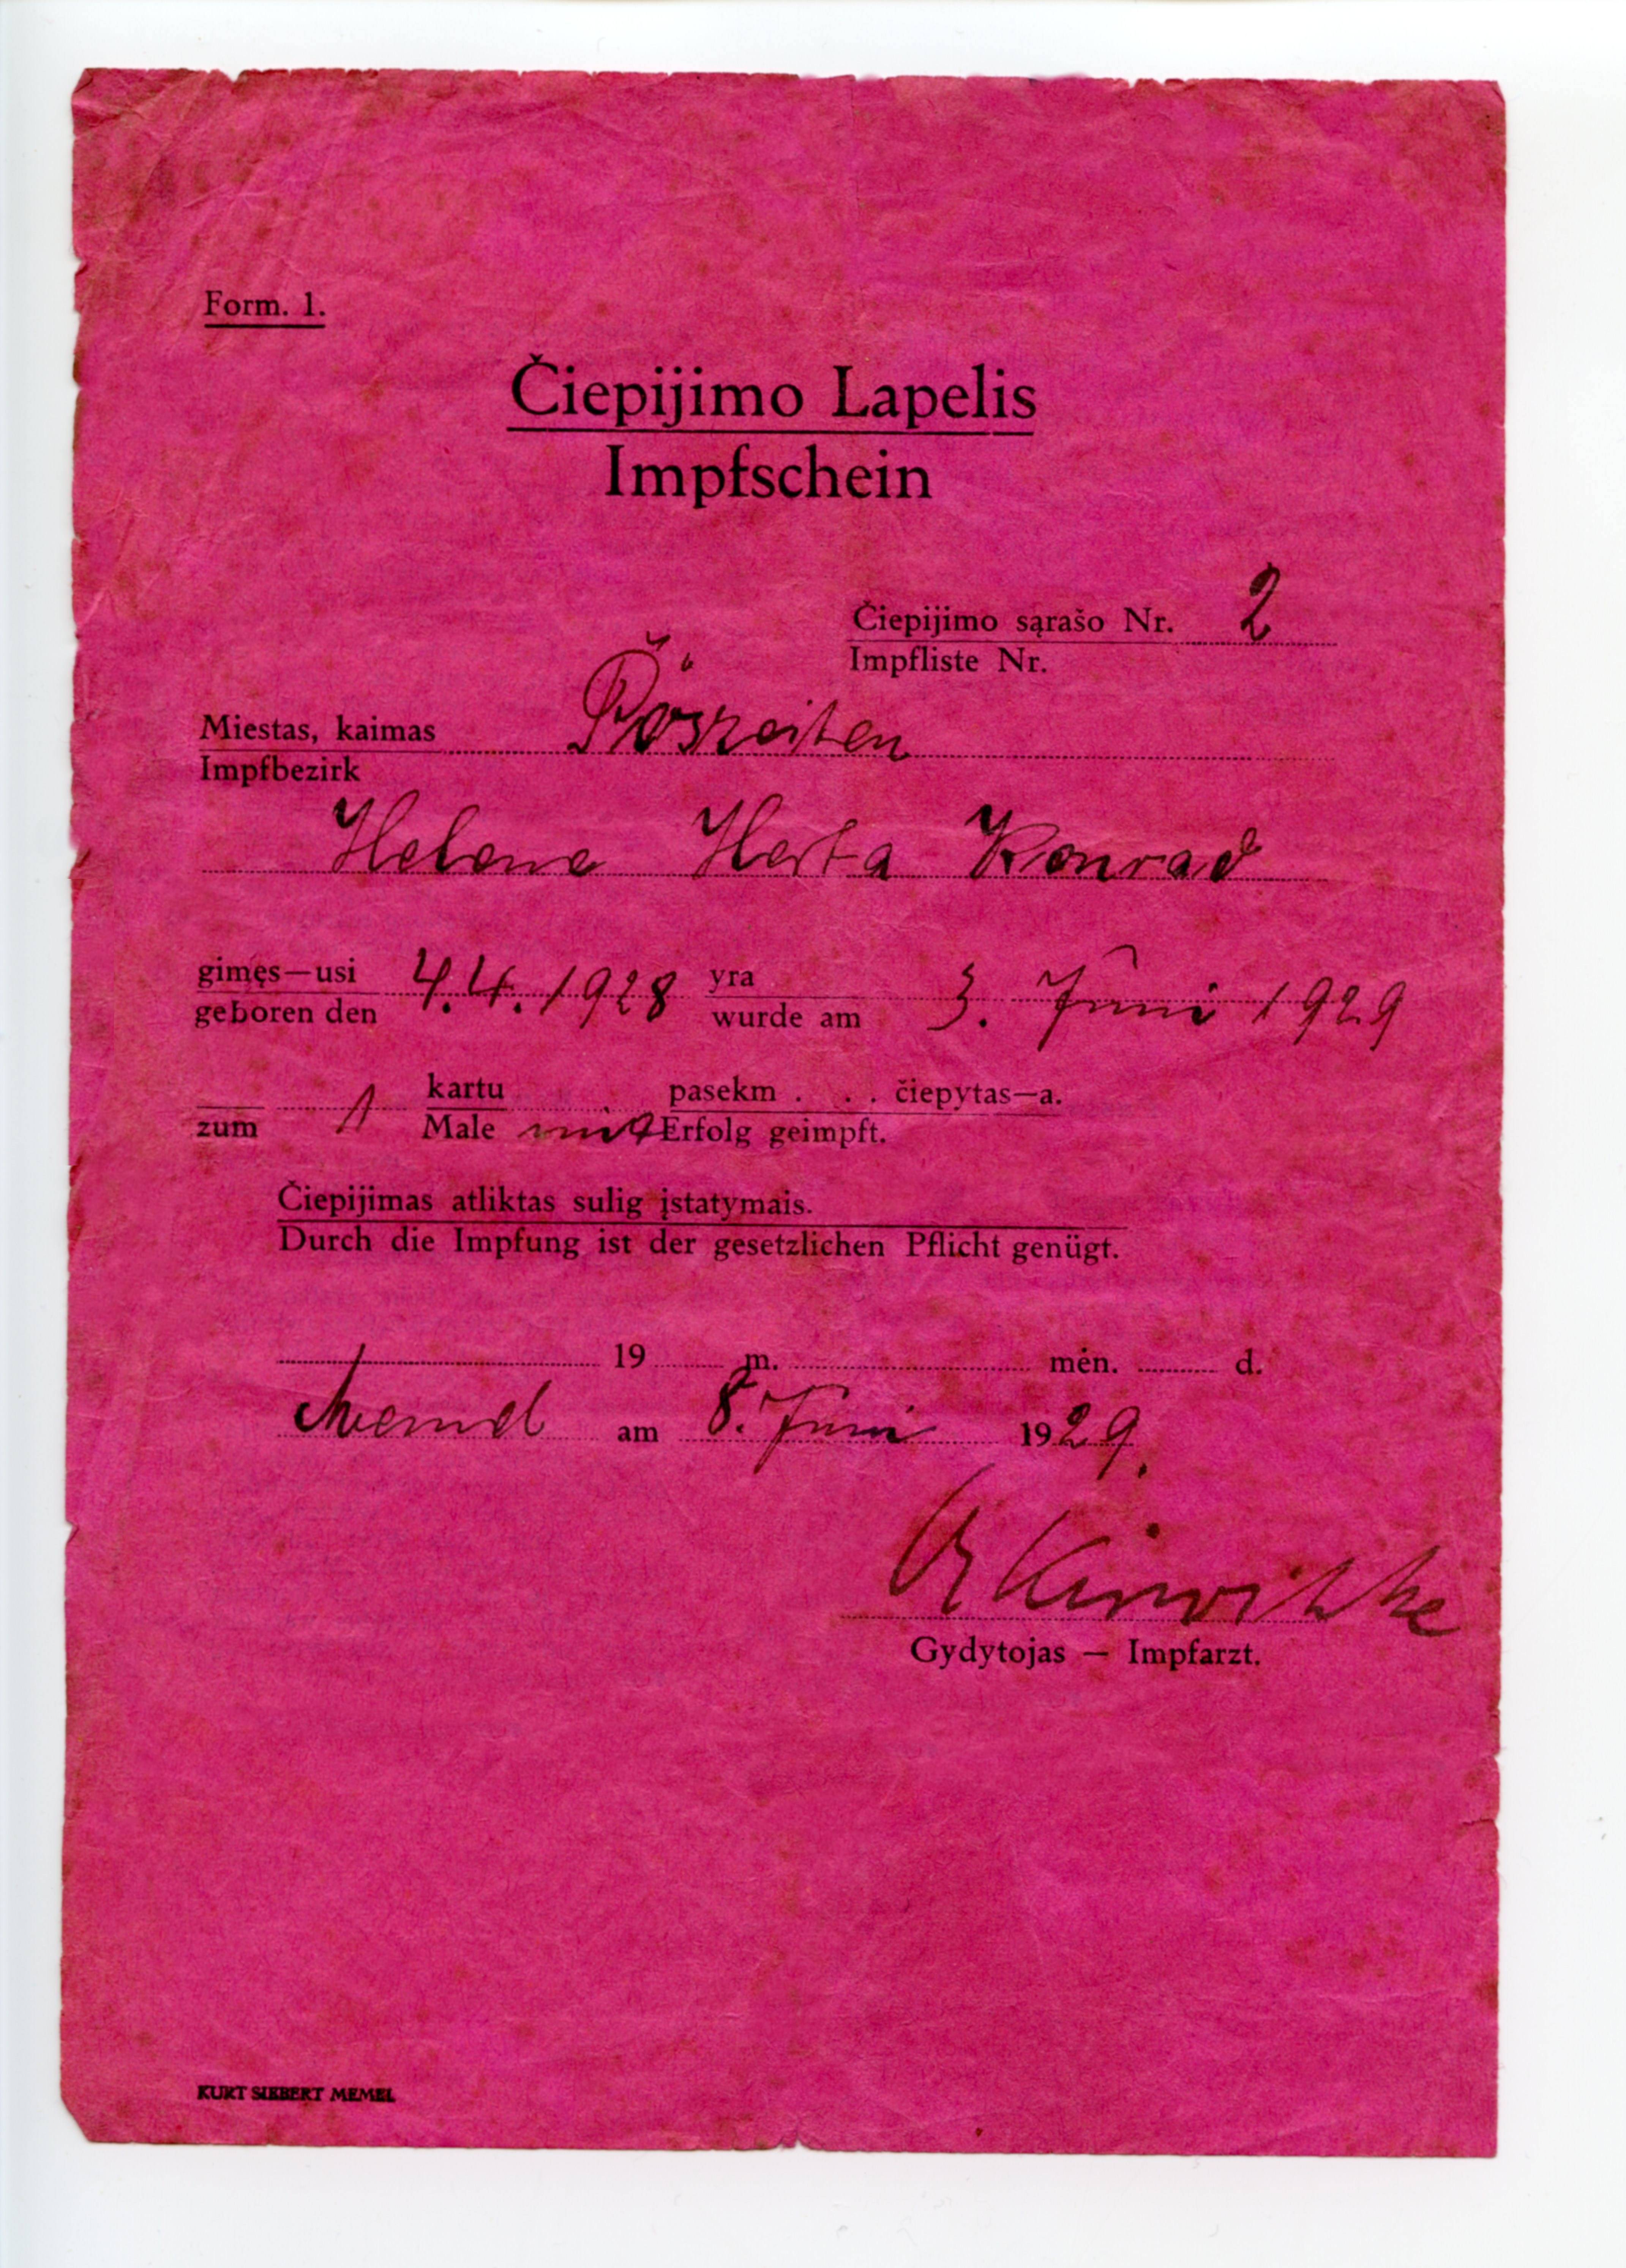 Form. 1.
Čiepijimo Lapelis
Impfschein
Čiepijimo sąrašo Nr. 2
Impfliste Nr.
Miestas, kaimas Pöszeiten
Impfbezirk
Helene Herta Konrad
gimęs—usi 4.4.1928 yra 3. Juni 1929
geboren den wurde am
1 kartu pasekm . . . čiepytas—a.
zum Male mit Erfolg geimpft.
Čiepijimas atliktas sulig įstatymais.
Durch die Impfung ist der gesetzlichen Pflicht genügt.
19 m. mėn. d.
Memel am 8. Juni 1929.
Gydytojas — Impfarzt.
KURT SIEBERT MEMEL